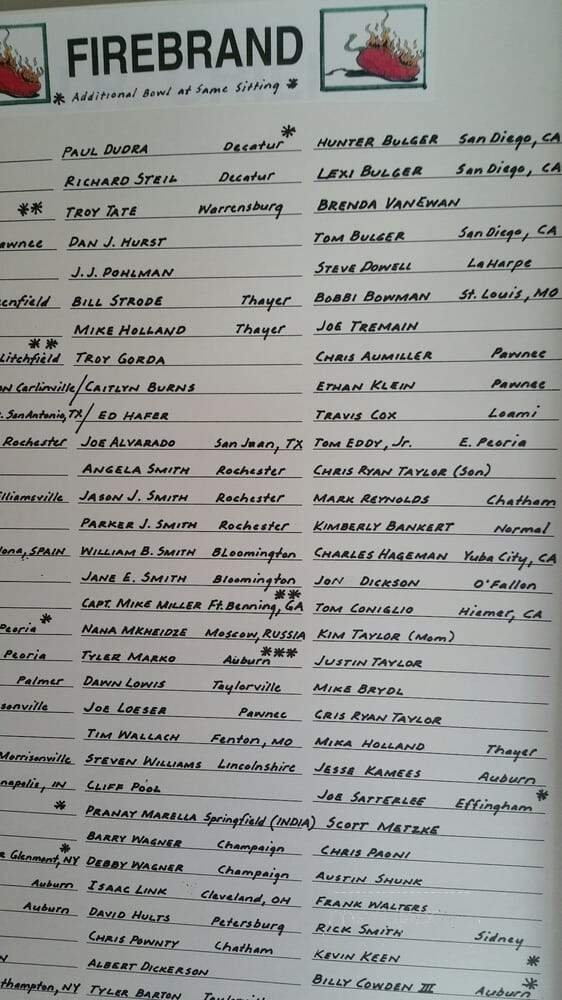 FIREBRAND
* Additional Bowl at Same Sitting *
PAUL DUDRA Decatur *
RICHARD STEIL Decatur
** TROY TATE Warrensburg
awnee DAN J. HURST
J.J. POHLMAN
enfield BILL STRODE Thayer
MIKE HOLLAND Thayer
Litchfield ** TROY GORDA
Carlinville / CAITLYN BURNS
San Antonio, TX / ED HAFER
Rochester JOE ALVARADO San Juan, TX
ANGELA SMITH Rochester
lliamsville JASON J. SMITH Rochester
PARKER J. SMITH Rochester
lona, SPAIN WILLIAM B. SMITH Bloomington
JANE E. SMITH Bloomington
CAPT. MIKE MILLER Ft. Benning, GA **
Peoria * NANA MKHEIDZE Moscow, RUSSIA
Peoria TYLER MARKO Auburn ***
Palmer DAWN LOWIS Taylorville
sonville JOE LOESER Pawnee
TIM WALLACH Fenton, MO
Morrisonville STEVEN WILLIAMS Lincolnshire
napolis, IN CLIFF POOL
* PRANAY MARELLA Springfield (INDIA)
BARRY WAGNER Champaign
Glenmont, NY * DEBBY WAGNER Champaign
Auburn ISAAC LINK Cleveland, OH
Auburn DAVID HULTS Petersburg
CHRIS POWNTY Chatham
N ALBERT DICKERSON
thampton, NY TYLER BARTON
HUNTER BULGER San Diego, CA
LEXI BULGER San Diego, CA
BRENDA VANEWAN
TOM BULGER San Diego, CA
STEVE DOWELL LaHarpe
BOBBI BOWMAN St. Louis, MO
JOE TREMAIN
CHRIS AUMILLER Pawnee
ETHAN KLEIN Pawnee
TRAVIS COX Loami
TOM EDDY, Jr. E. Peoria
CHRIS RYAN TAYLOR (Son)
MARK REYNOLDS Chatham
KIMBERLY BANKERT Normal
CHARLES HAGEMAN Yuba City, CA
JON DICKSON O'Fallon
TOM CONIGLIO Hiemer, CA
KIM TAYLOR (Mom)
JUSTIN TAYLOR
MIKE BRYDL
CRIS RYAN TAYLOR
MIKA HOLLAND Thayer
JESSE KAMEES Auburn
JOE SATTERLEE Effingham *
SCOTT METZKE
CHRIS PAONI
AUSTIN SHUNK
FRANK WALTERS
RICK SMITH Sidney
KEVIN KEEN *
BILLY COWDEN III Auburn *